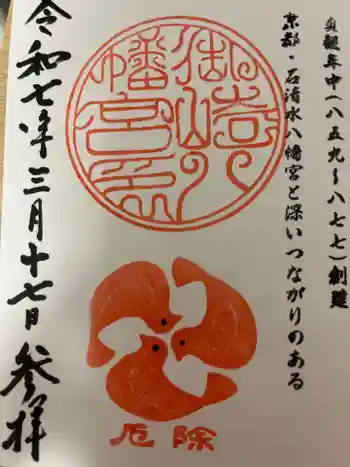 貞観年中(八五九〜八七七)創建
京都・石清水八幡宮と深いつながりのある
御崎八
幡宮印
厄除
令和七年三月十七日 参拝